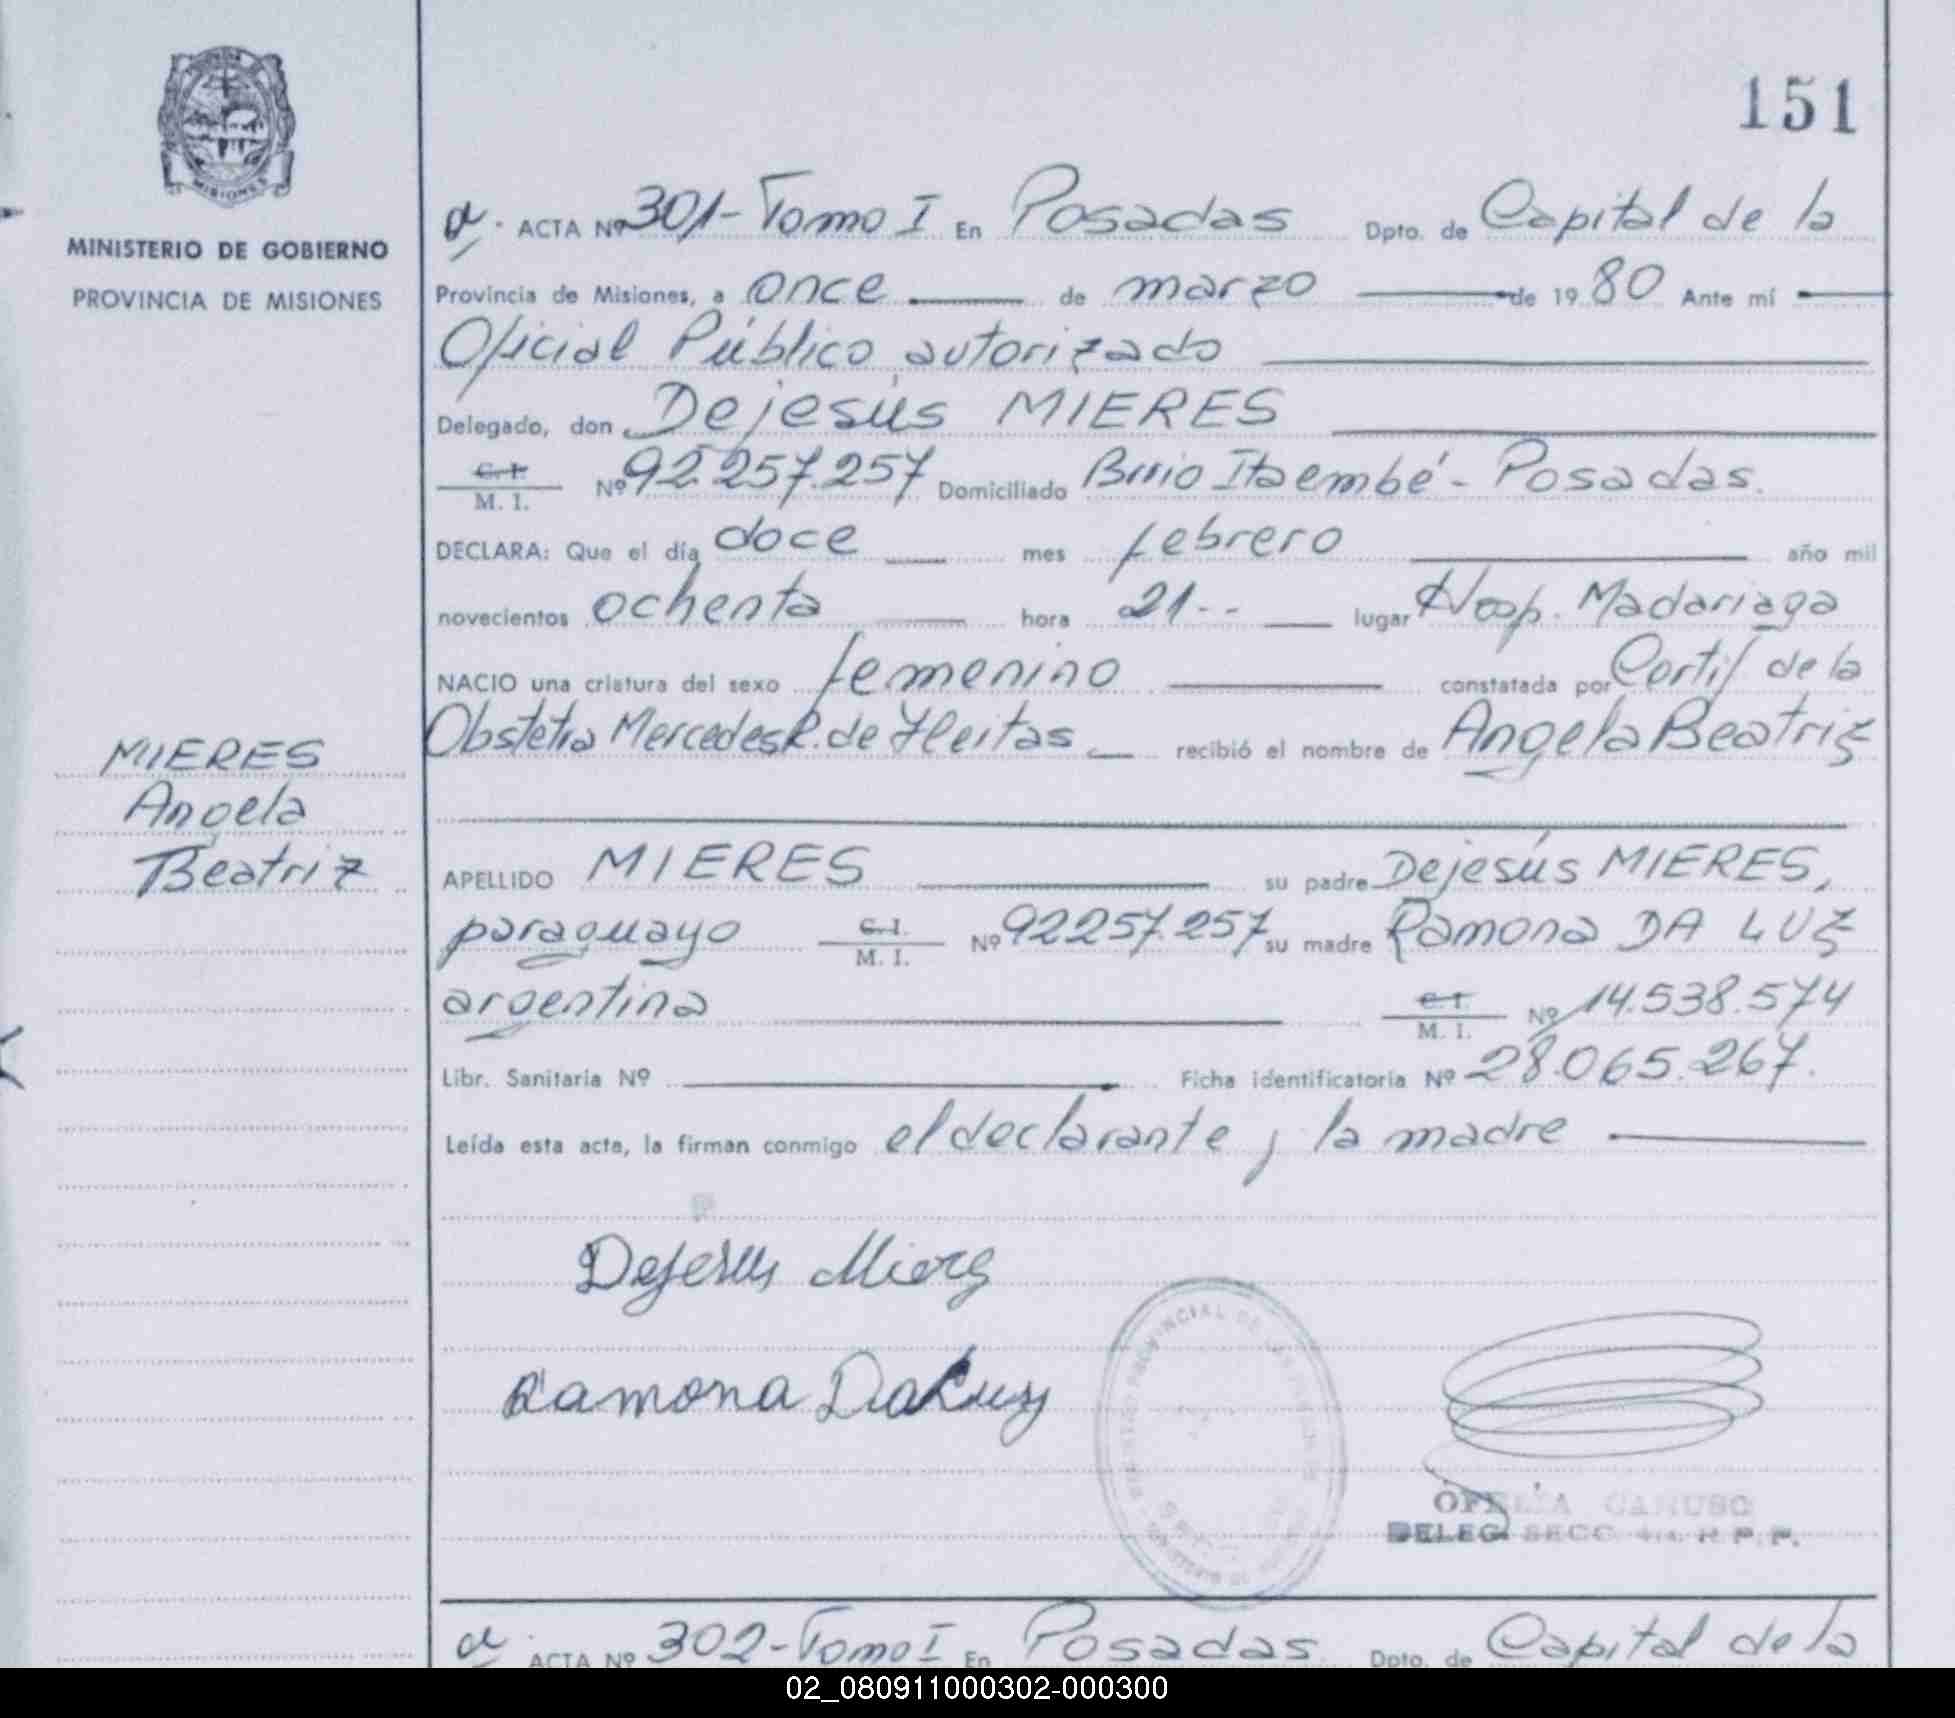 MISIONES
MINISTERIO DE GOBIERNO
PROVINCIA DE MISIONES
151
ACTA Nº 301-Tomo I En Posadas Dpto. de Capital de la
Provincia de Misiones, a once de marzo de 1980 Ante mí
Oficial Público autorizado
Delegado, don Dejesús MIERES
C. I. M. I. Nº 92.257.257 Domiciliado Brrio Itaembé - Posadas.
DECLARA: Que el día doce mes febrero año mil
novecientos ochenta hora 21-- lugar Hosp. Madariaga
NACIO una criatura del sexo femenino constatada por Certif de la
Obstetra Mercedes R. de Fleitas recibió el nombre de Angela Beatriz
MIERES
Angela
Beatriz
APELLIDO MIERES su padre Dejesús MIERES,
paraguayo C. I. M. I. Nº 92257.257 su madre Ramona DA LUZ
argentina C. I. M. I. Nº 14.538.574
Libr. Sanitaria Nº Ficha identificatoria Nº 28.065.267.
Leída esta acta, la firman conmigo el declarante y la madre
Dejesus Mieres
Ramona DaLuz
OFELIA CARUSO
DELEG. SECC.
ACTA Nº 302-Tomo I En Posadas Dpto. de Capital de la
02_080911000302-000300